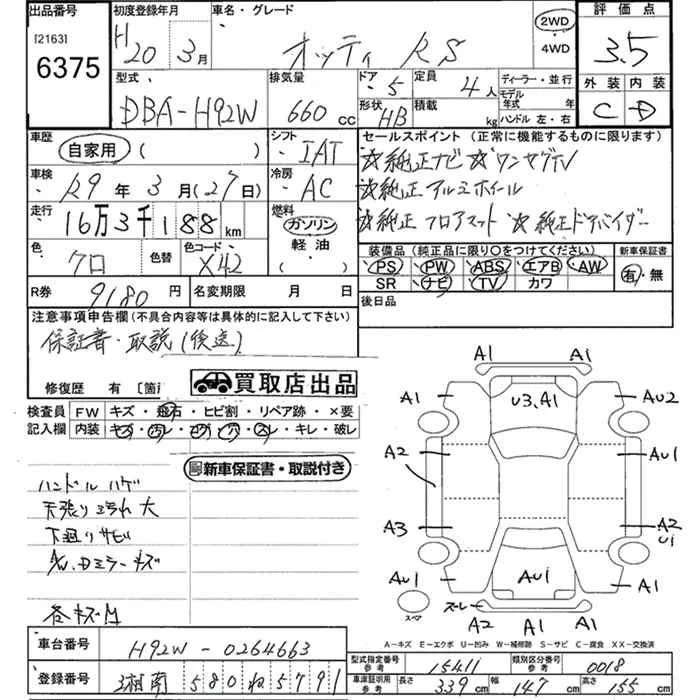 出品番号
[2163]
6375
初度登録年月
H20 3月
車名・グレード
オッティ RS
2WD
・
4WD
評価点
3.5
外装 内装
C D
型式
DBA-H92W
排気量
660 cc
ドア
・5
定員
4人
形状
HB
積載
kg
ディーラー・並行
モデル
年式 年
ハンドル 左・右
車歴
自家用 ( )
シフト
IAT
車検
R9年3月(27日)
冷房
AC
走行
16万3千188km
燃料
ガソリン
軽油
( )
色
クロ
色替
色コード
X42
R券
9180円
名変期限 月 日
セールスポイント(正常に機能するものに限ります)
☆純正ナビ ☆ワンセグTV
☆純正アルミホイール
☆純正フロアマット ☆純正ドアバイザー
装備品(純正品に限り○をつけてください)
PS PW ABS エアB AW
SR ナビ TV カワ
新車保証書
有・無
後日品
注意事項申告欄(不具合内容等は具体的に記入して下さい)
保証書・取説(後送)
修復歴 有 〔箇
買取店出品
検査員
記入欄
FW キズ・飛石・ヒビ割・リペア跡・×要
内装 キズ・汚レ・コゲ・穴・スレ・キレ・破レ
新車保証書・取説付き
ハンドルハゲ
天張り汚れ大
下廻りサビ
A/W、Dミラーキズ
各キズ凹
A1 A1
A1 U3、A1 AU2
A2 AU1
A3 A2
U1
AU1 AU1 A1
スペア
ズーレ
A2 A1 A1
A-キズ E-エクボ U-凹み W-補修跡 S-サビ C-腐食 XX-交換済
車台番号
H92W-0264663
登録番号
湘南 580 ね 5791
型式指定番号
参考
15411
類別区分番号
参考
0018
車庫証明用
参考
長さ 339cm 幅 147cm 高さ 155cm